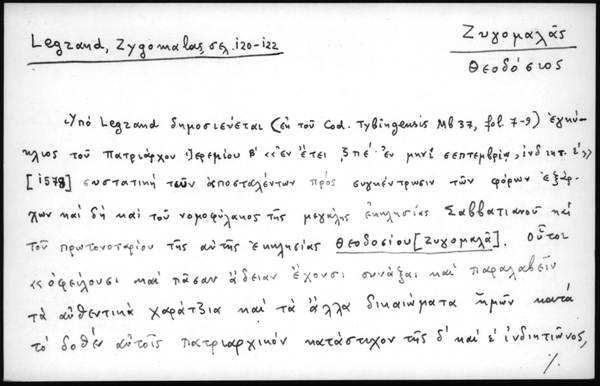 Legrand, Zygomalas, σελ. 120-122
Ζυγομαλᾶς
Θεοδόσιος
Ὑπό Legrand δημοσιεύεται (ἐκ τοῦ Cod. Tybingensis Mb 37, fol. 7-9) ἐγκύ-
κλιος τοῦ Πατριάρχου Ἱερεμίου Β' «ἐν ἔτει ζπέ ἐν μηνί σεπτεμβρίῳ, ἰνδικτ. έ»
[1578] συστατική τῶν ἀποσταλέντων πρός συγκέντρωσιν τῶν φόρων ἐξάρ-
χων καί δή καί τοῦ νομοφύλακος τῆς μεγάλης ἐκκλησίας Σαββατιανοῦ καί
τοῦ πρωτονοταρίου τῆς αὐτῆς ἐκκλησίας Θεοδοσίου [Ζυγομαλᾶ]. Οὗτοι
«ὀφείλουσι καί πᾶσαν ἄδειαν ἔχουσι συνάξαι καί παραλαβεῖν
τὰ αὐθεντικὰ χαράτζια καί τὰ ἄλλα δικαιώματα ἡμῶν κατά
τό δοθέν αὐτοῖς πατριαρχικόν κατάστιχον τῆς δ' καί ε' ἰνδικτιῶνος,
./.